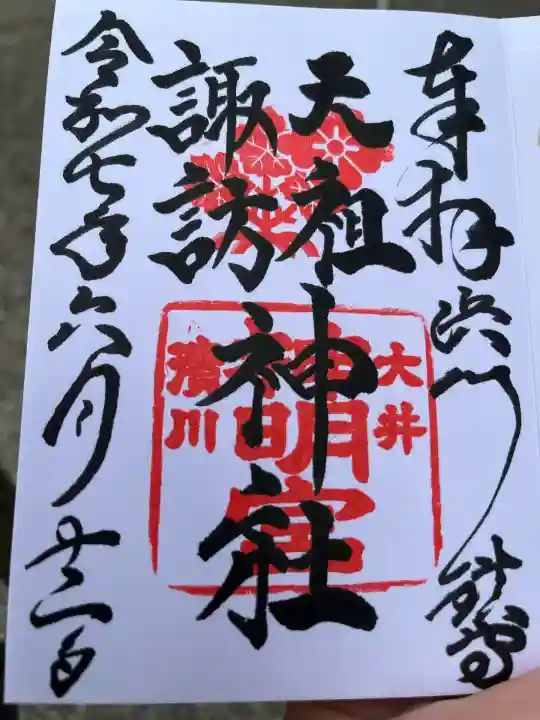 奉拝 浜川 鎮守
天祖
諏訪
神社
令和七年六月廿二日
大井
神明宮
濱川